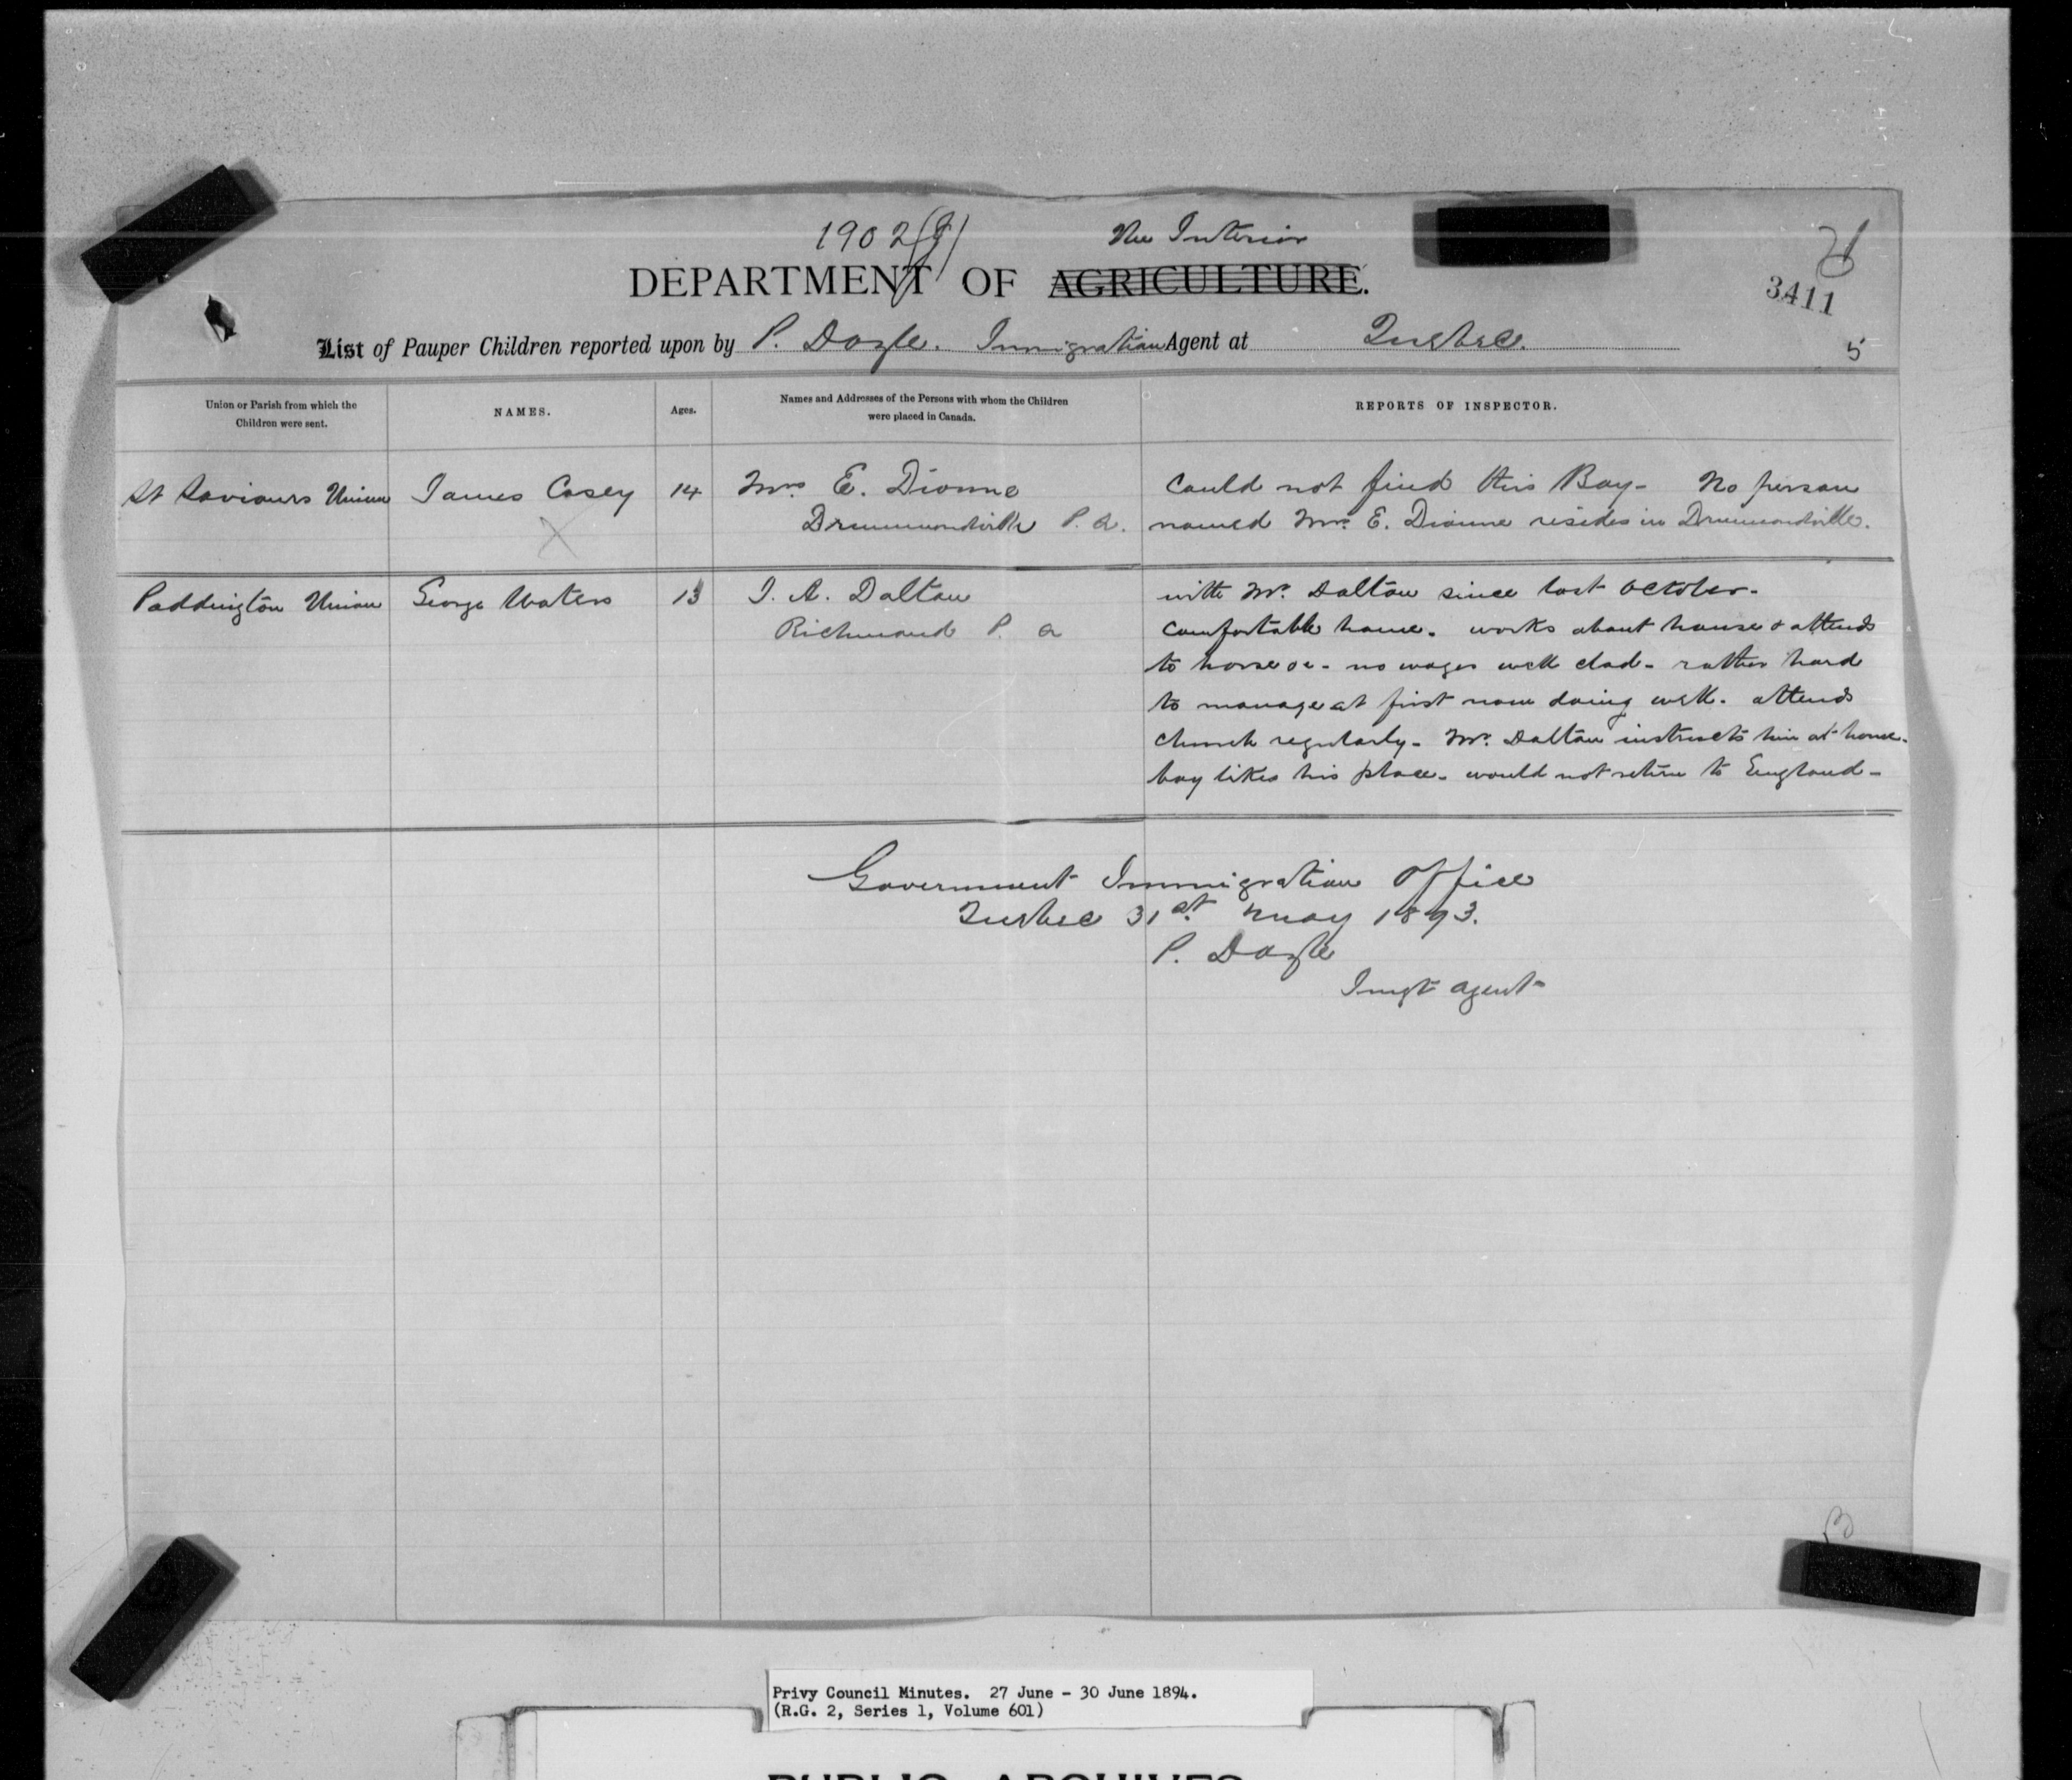 1902(g)
The Interior
DEPARTMENT OF AGRICULTURE.
3411
List of Pauper Children reported upon by P. Doyle. Immigration Agent at Quebec.
5
Union or Parish from which the
Children were sent.
NAMES.
Ages.
Names and Addresses of the Persons with whom the Children
were placed in Canada.
REPORTS OF INSPECTOR.
St Saviours Union
James Casey
14
Mrs E. Dionne
Drummondville P. Q.
Could not find this Boy - No person
named Mrs E. Dionne resides in Drummondville.
X
Paddington Union
George Waters
13
J. A. Dalton
Richmond P. Q
with Mr. Dalton since last October -
Comfortable home. works about house & attends
to horse &c - no wages well clad - rather hard
to manage at first now doing well. attends
Church regularly - Mr. Dalton instructs him at home.
boy likes his place. would not return to England -
Government Immigration Office
Quebec 31st May 1893.
P. Doyle
Imgt agent
Privy Council Minutes. 27 June - 30 June 1894.
(R.G. 2, Series 1, Volume 601)
PUBLIC ARCHIVES